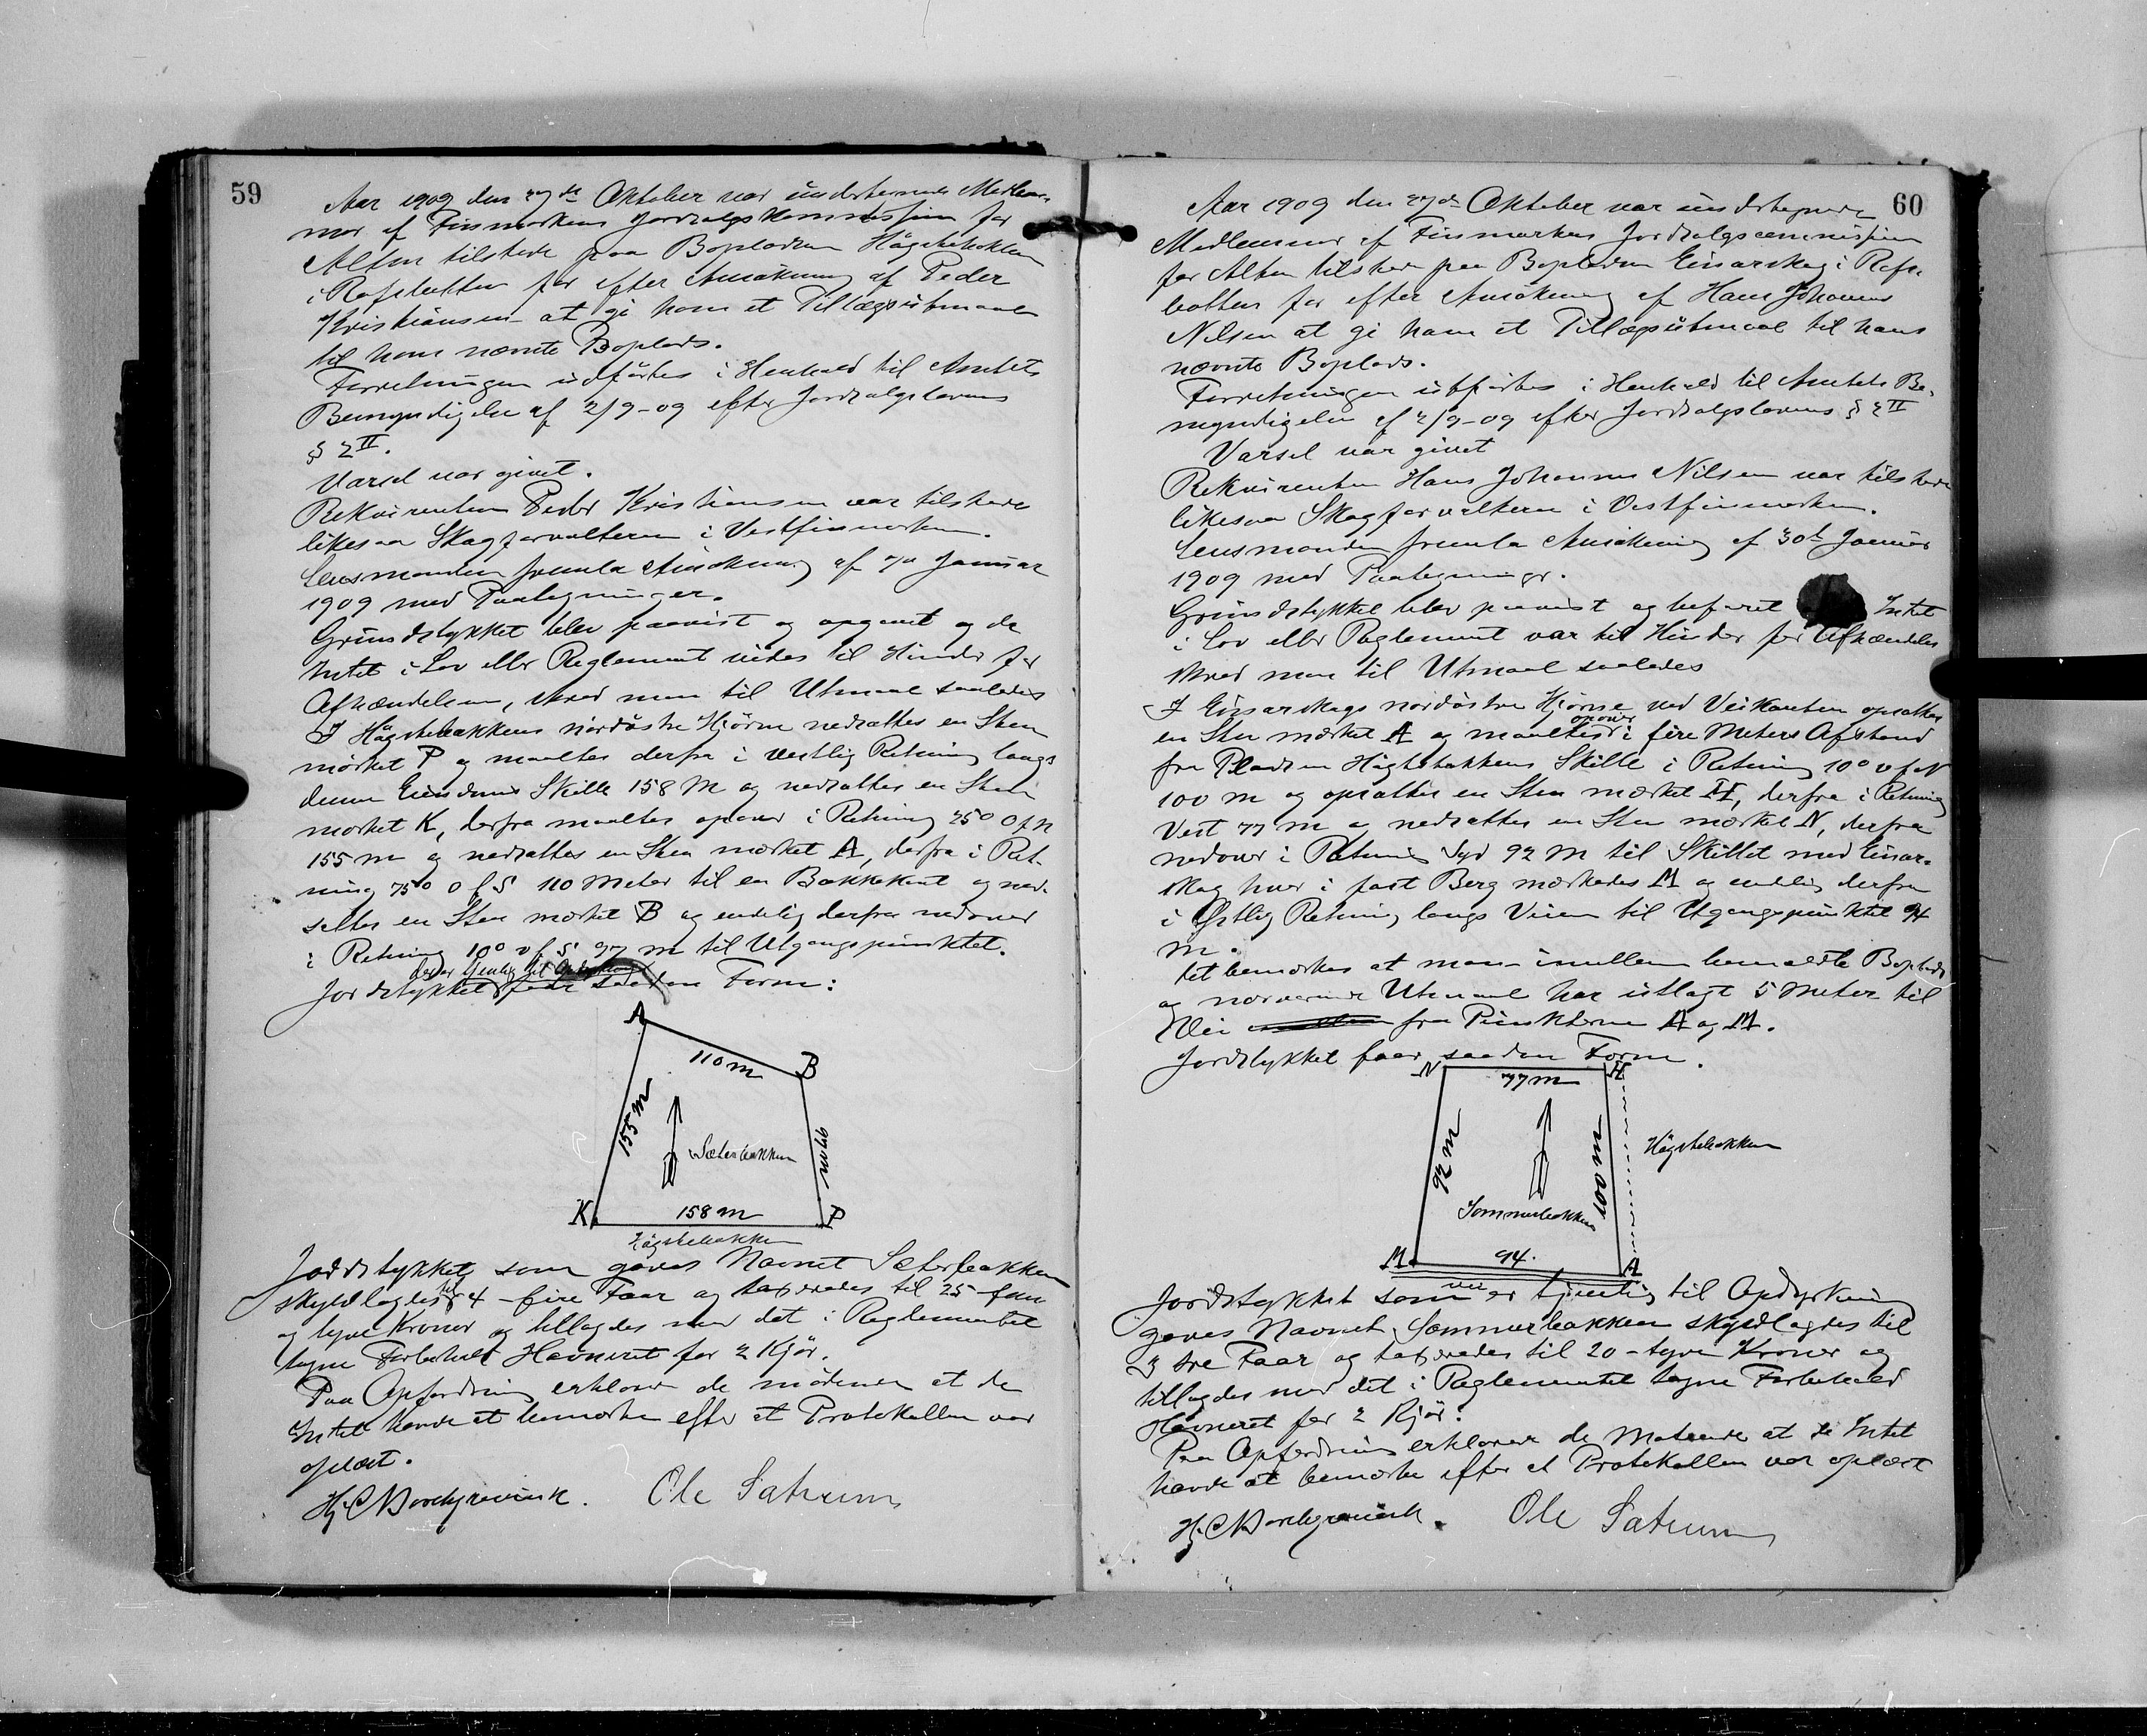 59
Aar 1909 den 27de Oktober var undertegnede Medlem-
mer af Finmarkens Jordsalgskommission for
Alten tilstede paa Bopladsen Høgstebakken
i Rafsbotten for efter Ansøkning af Peder
Kristiansen at gi ham et Tillægsutmaal
til hans nævnte Boplads.
Forretningen utførtes i Henhold til Amtets
Bemyndigelse af 2/9-09 efter Jordsalgslovens
§ 2 II.
Varsel var givet.
Rekvirenten Peder Kristiansen var tilstede
likesaa Skogforvalteren i Vestfinmarken.
Lensmanden fremla Ansøkning af Januar
1909 med Paategninger.
Grundstykket blev paavist og opgaaet og da
Intet i Lov eller Reglement vites til Hinder for
Afhændelsen, skred man til Utmaal saaledes
I Høgstebakkens nordøstre Hjørne nedsattes en Sten
mørket P og maaltes derfra i vestlig Retning langs
denne Eiendoms Skille 158 M og nedsattes en Sten
mørket K, derfra maaltes opover i Retning 25° O f N
155 m og nedsattes en Sten mørket A, derfra i Ret-
ning 75° O f S 110 Meter til en Bakkekant og ned-
sattes en Sten mørket B og endelig derfra nedover
i Retning 10° v f S 97 m til Utgangspunktet.
der er tjenlig til Opdyrkning
Jordstykket faar saadan Form:
A
110 m
B
155 m
97 m
Sæterbakken
K
158 m
P
Høgstebakken
Jordstykket som gaves Navnet Sæterbakken
skyldlagdes til 4 - fire Faar og taxeredes til 25 - fem
og tyve Kroner og tillagdes med det i Reglementet
tagne Forbehold Havneret for 2 Kjør.
Paa Opfordring erklærer de mødende at de
Intet havde at bemærke efter at Protokollen var
oplæst.
Hj. C. Borchgrevink. Ole Sætrum
60
Aar 1909 den 27de Oktober var undertegnede
Medlemmer af Finmarkens Jordsalgscommission
for Alten tilstede paa Bopladsen Einarskog i Rafs-
botten for efter Ansøkning af Hans Johannes
Nilsen at gi ham et Tillægsutmaal til hans
nævnte Boplads.
Forretningen utførtes i Henhold til Amtets Be-
myndigelse af 2/9-09 efter Jordsalgslovens § 2 II
Varsel var givet
Rekvirenten Hans Johannes Nilsen var tilstede
likesaa Skogforvalteren i Vestfinmarken.
Lensmanden fremla Ansøkning af 30te Januar
1909 med Paategninger.
Grundstykket blev paavist og befaret Intet
i Lov eller Reglement var til Hinder for Afhændelse
skred man til Utmaal saaledes
I Einarskogs nordøstre Hjørne ved Veikanten opsattes
en Sten mærket A og maaltes opover i fire Meters Afstand
fra Pladsen Høgstebakkens Skille i Retning 10° v f N
100 m og opsattes en Sten mærket H, derfra i Retning
Vest 77 m og nedsattes en Sten mærket N, derfra
nedover i Retning Syd 92 M til Skillet med Einar-
skog hvor i fast Berg mærkedes M og endelig derfra
i Østlig Retning langs Veien til Utgangspunktet 94
m.
Det bemærkes at man imellem bemeldte Boplads
og nærværende Utmaal har utlagt 5 Meter til
Vei fra Punkterne A og M.
Jordstykket faar saadan Form.
N
77 m
H
92 m
100 m
Høgstebakken
Sommerbakken
M
94.
A
vei
Jordstykket som er tjenlig til Opdyrkning
gaves Navnet Sommerbakken skyldlagdes til
3 tre Faar og taxeredes til 20 - tyve Kroner og
tillagdes med det i Reglementet tagne Forbehold
Havneret for 2 Kjør.
Paa Opfordring erklærer de Møtende at de Intet
havde at bemærke efter at Protokollen var oplæst
Hj. C. Borchgrevink. Ole Sætrum